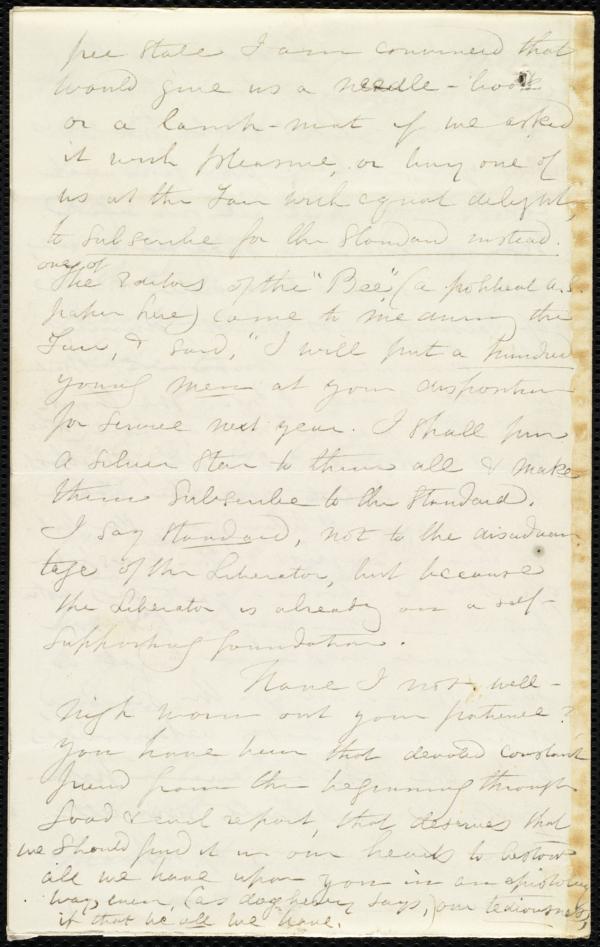 free state I am convinced that
would give us a needle-book
or a lamp-mat if we asked
it with pleasure, or buy one of
us at the Fair with equal delight,
to subscribe for the Standard instead.
one of
The Editors of the "Bee" (a political a.s.
paper here) came to me during the
Fair, & said, "I will put a hundred
young men at your disposition
for service next year. I shall pin
a silver star to them all & make
them subscribe to the Standard.
I say Standard, not to the disadvan
tage of the Liberator, but because
the Liberator is already on a self-
supporting foundation.
Have I not well-
nigh worn out your patience?
You have been that devoted constant
friend from the beginning through
good & evil report, that deserves that
we should find it in our hearts to bestow
all we have upon you in an epistolary
way, even, (as dogberry says,) our tediousness,
if that be all we have.